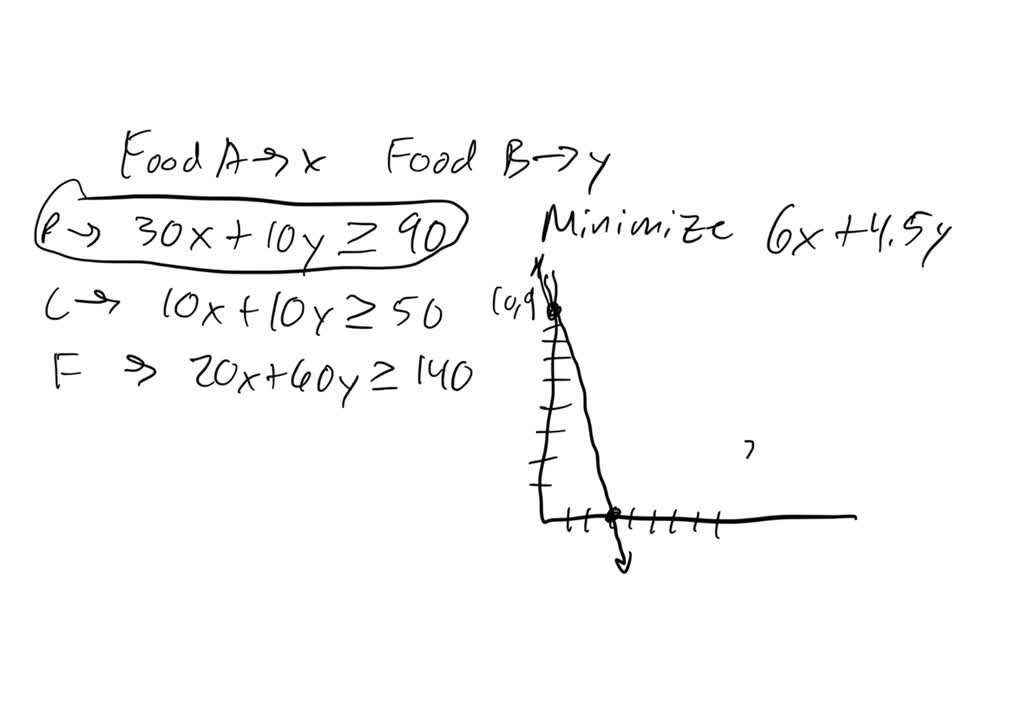 Food A → x Food B → y
P → 30x + 10y ≥ 90
Minimize 6x + 4.5y
C → 10x + 10y ≥ 50
(0,9
F → 20x + 60y ≥ 140